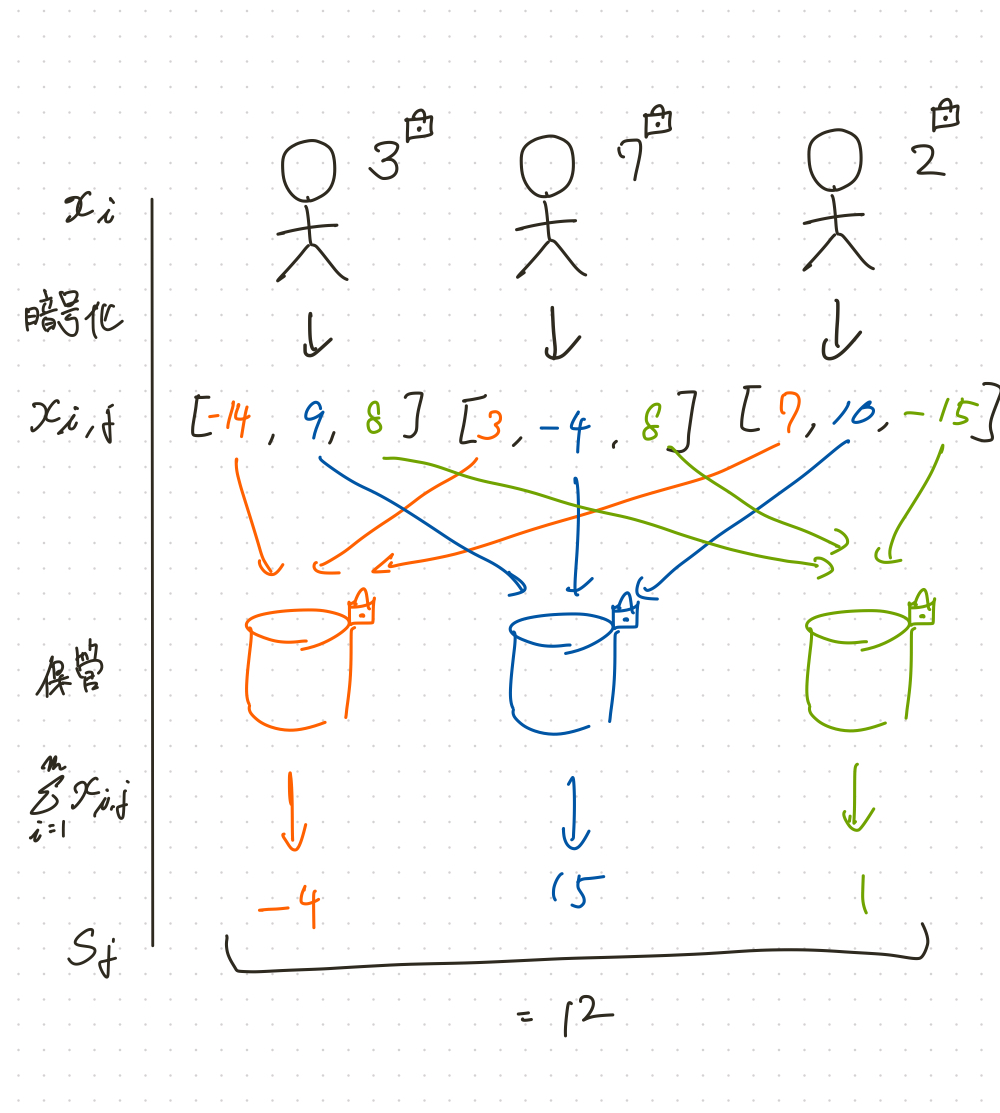 3 7 2
xᵢ
暗号化
xᵢ,ⱼ [-14, 9, 8] [3, -4, 8] [7, 10, -15]
保管
∑ᵢ₌₁ᵐ xᵢ,ⱼ
-4 15 1
Sⱼ
= 12